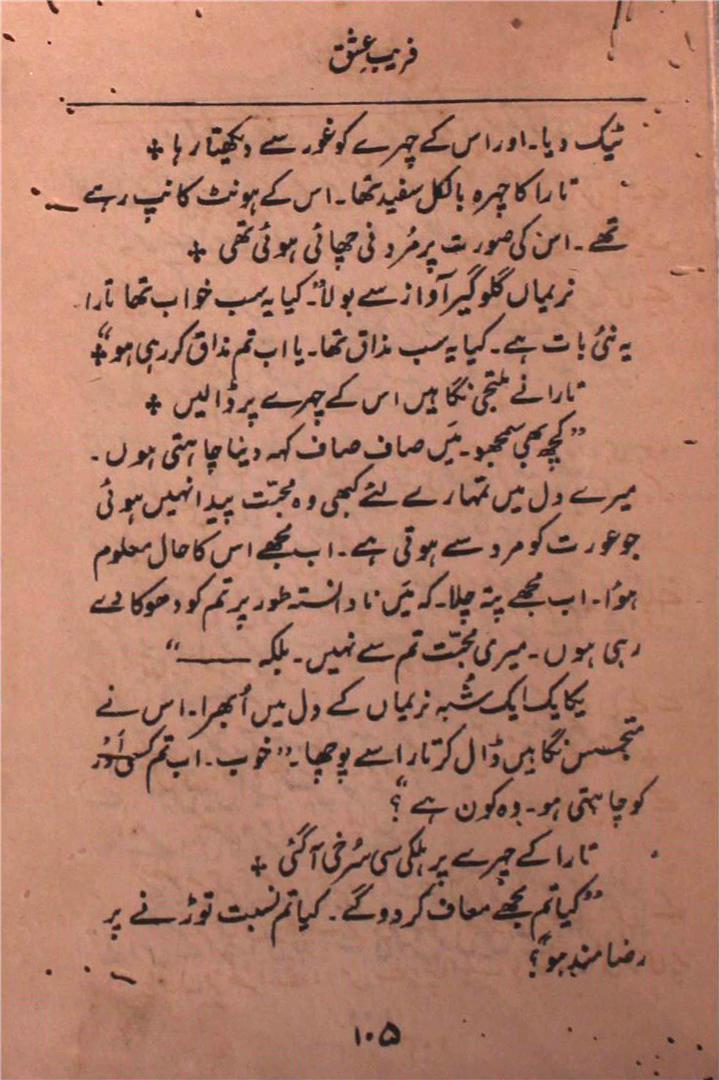 فریبِ عشق
ٹیک دیا۔ اور اس کے چہرے کو غور سے دیکھتا رہا +
تارا کا چہرہ بالکل سفید تھا۔ اس کے ہونٹ کانپ رہے
تھے۔ اس کی صورت پر مُردنی چھائی ہوئی تھی +
نریماں گلوگیر آواز سے بولا "کیا یہ سب خواب تھا تارا
یہ نئی بات ہے۔ کیا یہ سب مذاق تھا۔ یا اب تم مذاق کر رہی ہو" +
تارا نے ملتجی نگاہیں اس کے چہرے پر ڈالیں +
"کچھ بھی سمجھو۔ مَیں صاف صاف کہہ دینا چاہتی ہوں۔
میرے دل میں تمہارے لئے کبھی وہ محبّت پیدا نہیں ہوئی
جو عورت کو مرد سے ہوتی ہے۔ اب مُجھے اس کا حال معلوم
ہؤا۔ اب مُجھے پتہ چلا۔ کہ مَیں نادانستہ طور پر تم کو دھوکا دے
رہی ہوں۔ میری محبّت تم سے نہیں۔ بلکہ ——"
یکایک ایک شُبہ نریماں کے دل میں اُبھرا۔ اس نے
متجسس نگاہیں ڈال کر تارا سے پوچھا۔ "خوب۔ اب تم کسی اَور
کو چاہتی ہو۔ وہ کون ہے"؟
تارا کے چہرے پر ہلکی سی سُرخی آ گئی +
"کیا تم مجھے معاف کر دو گے۔ کیا تم نسبت توڑنے پر
رضا مند ہو"؟
۱۰۵